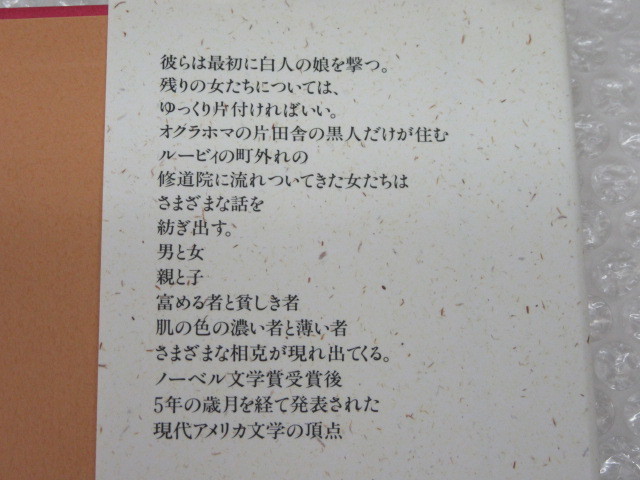 彼らは最初に白人の娘を撃つ。
残りの女たちについては、
ゆっくり片付ければいい。
オグラホマの片田舎の黒人だけが住む
ルービィの町外れの
修道院に流れついてきた女たちは
さまざまな話を
紡ぎ出す。
男と女
親と子
富める者と貧しき者
肌の色の濃い者と薄い者
さまざまな相克が現れ出てくる。
ノーベル文学賞受賞後
5年の歳月を経て発表された
現代アメリカ文学の頂点